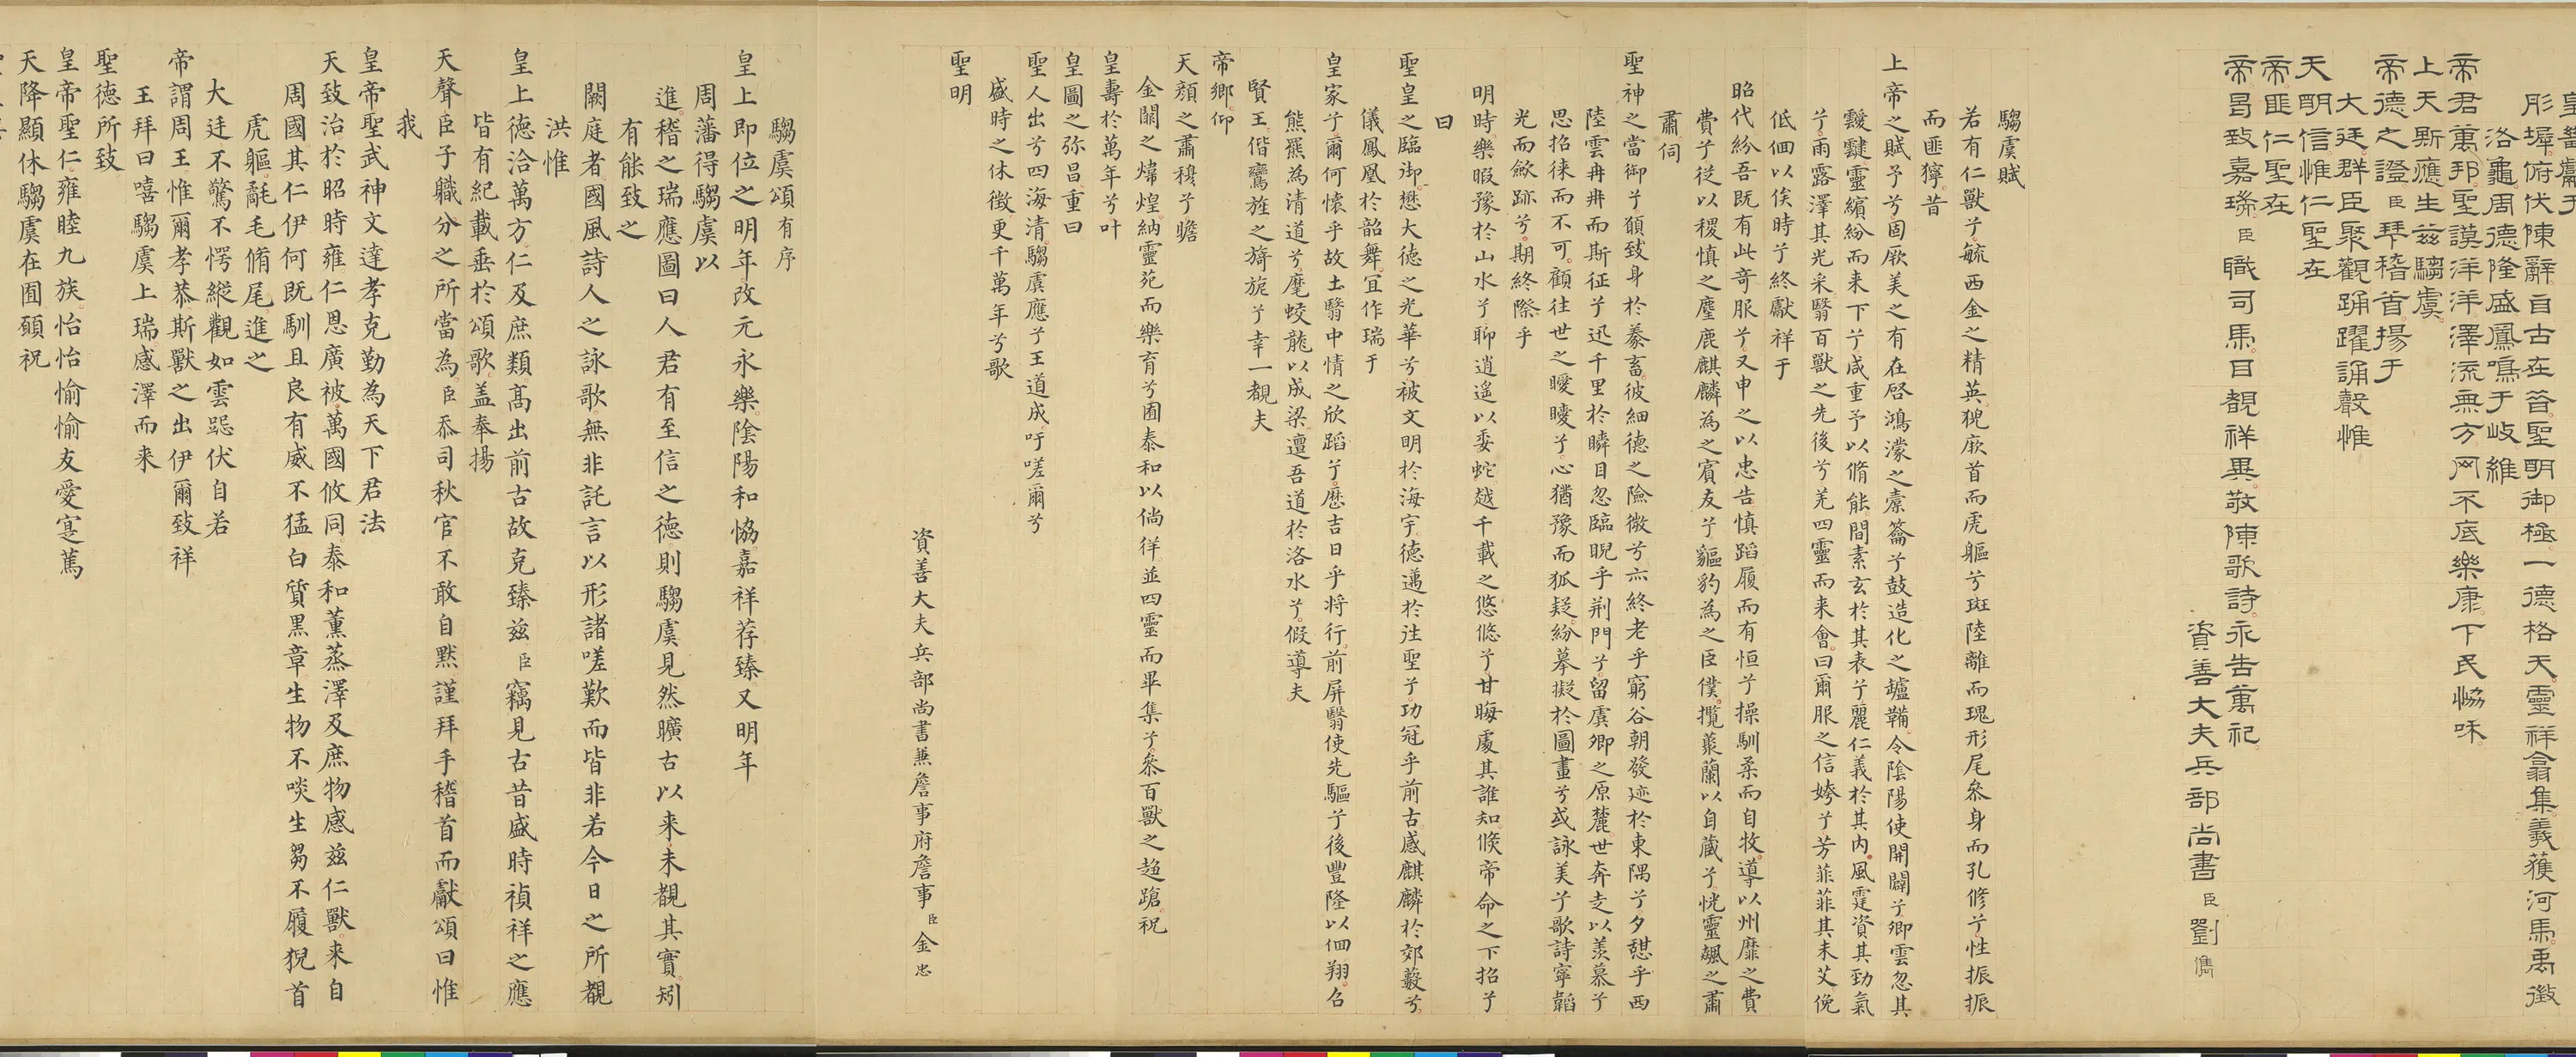 皇
彤墀俯伏陳辭自古在昔聖明御極一德格天靈祥翕集羲獲河馬禹徵
洛龜周德隆盛鳳鳴于岐維
帝君萬邦聖謨洋洋澤流無方罔不底樂康下民恊咊
上天斯應生茲騶虞
帝德之證臣拜稽首揚于
大廷群臣聚觀踊躍誦聲惟
天明信惟仁聖在
帝匪仁聖在
帝曷致嘉瑞臣職司馬目覩祥異敬陳歌詩永告萬祀
資善大夫兵部尚書臣劉儁
騶虞賦
若有仁獸兮毓西金之精英猊厥首而虎軀兮斑陸離而瑰形尾叅身而孔修兮性振振
而匪獰昔
上帝之賦予兮固厥美之有在啓鴻濛之橐籥兮鼓造化之爐鞴令陰陽使開闢兮卿雲忽其
靉靆靈繽紛而来下兮咸重予以脩能間素玄於其表兮麗仁義於其内風霆資其勁氣
兮雨露澤其光采翳百獸之先後兮羌四靈而来會曰爾服之信姱兮芳菲菲其未艾俛
低佪以俟時兮終獻祥于
昭代紛吾既有此奇服兮又申之以忠告慎蹈履而有恒兮操馴柔而自牧導以州靡之費
費兮從以稷慎之麈鹿麒麟為之賓友兮貙豹為之臣僕攬蘂蘭以自蔵兮恍靈飊之肅
肅伺
聖神之當御兮願致身於豢畜彼細德之險微兮亦終老乎窮谷朝發迹於東隅兮夕憇乎西
陸雲冉冉而斯征兮迅千里於瞬目忽臨睨乎荆門兮留虞卿之原麓世奔走以羨慕兮
思招徕而不可顧往世之曖曖兮心猶豫而狐疑紛摹擬於圖畫兮或詠美兮歌詩寧韜
光而歛跡兮期終際乎
明時樂暇豫於山水兮聊逍遥以委蛇越千載之悠悠兮甘晦處其誰知倐帝命之下招兮
曰
聖皇之臨御懋大德之光華兮被文明於海宇德邁於徃聖兮功冠乎前古感麒麟於郊藪兮
儀鳳凰於韶舞宜作瑞于
皇家兮爾何懷乎故土翳中情之欣蹈兮歴吉日乎将行前屏翳使先驅兮後豐隆以佪翔召
熊羆為清道兮麾蛟龍以成梁邅吾道於洛水兮假導夫
賢王偕鸞旌之旖旎兮幸一覩夫
帝鄉仰
天顔之肅穆兮瞻
金闕之煒煌納靈苑而樂育兮囿泰和以倘徉並四靈而畢集兮叅百獸之趍蹌祝
皇壽於萬年兮叶
皇圖之弥昌重曰
聖人出兮四海清騶虞應兮王道成吁嗟爾兮
盛時之休徴更千萬年兮歌
聖明
資善大夫兵部尚書兼詹事府詹事臣金忠
騶虞頌有序
皇上即位之明年改元永樂陰陽和恊嘉祥荐臻又明年
周藩得騶虞以
進稽之瑞應圖曰人君有至信之德則騶虞見然曠古以来未覩其實矧
有能致之
闕庭者國風詩人之詠歌無非託言以形諸嗟歎而皆非若今日之所覩
洪惟
皇上德洽萬方仁及庶類髙出前古故克臻兹臣竊見古昔盛時禎祥之應
皆有紀載垂於頌歌盖奉揚
天聲臣子職分之所當為臣忝司秋官不敢自黙謹拜手稽首而獻頌曰惟
我
皇帝聖武神文達孝克勤為天下君法
天致治於昭時雍仁恩廣被萬國攸同泰和薫蒸澤及庶物感兹仁獸来自
周國其仁伊何既馴且良有威不猛白質黒章生物不啖生芻不履猊首
虎軀毿毛脩尾進之
大廷不驚不愕縱觀如雲跽伏自若
帝謂周王惟爾孝恭斯獸之出伊爾致祥
王拜曰嘻騶虞上瑞感澤而来
聖德所致
皇帝聖仁雍睦九族怡怡愉愉友愛寔篤
天降顯休騶虞在囿願祝